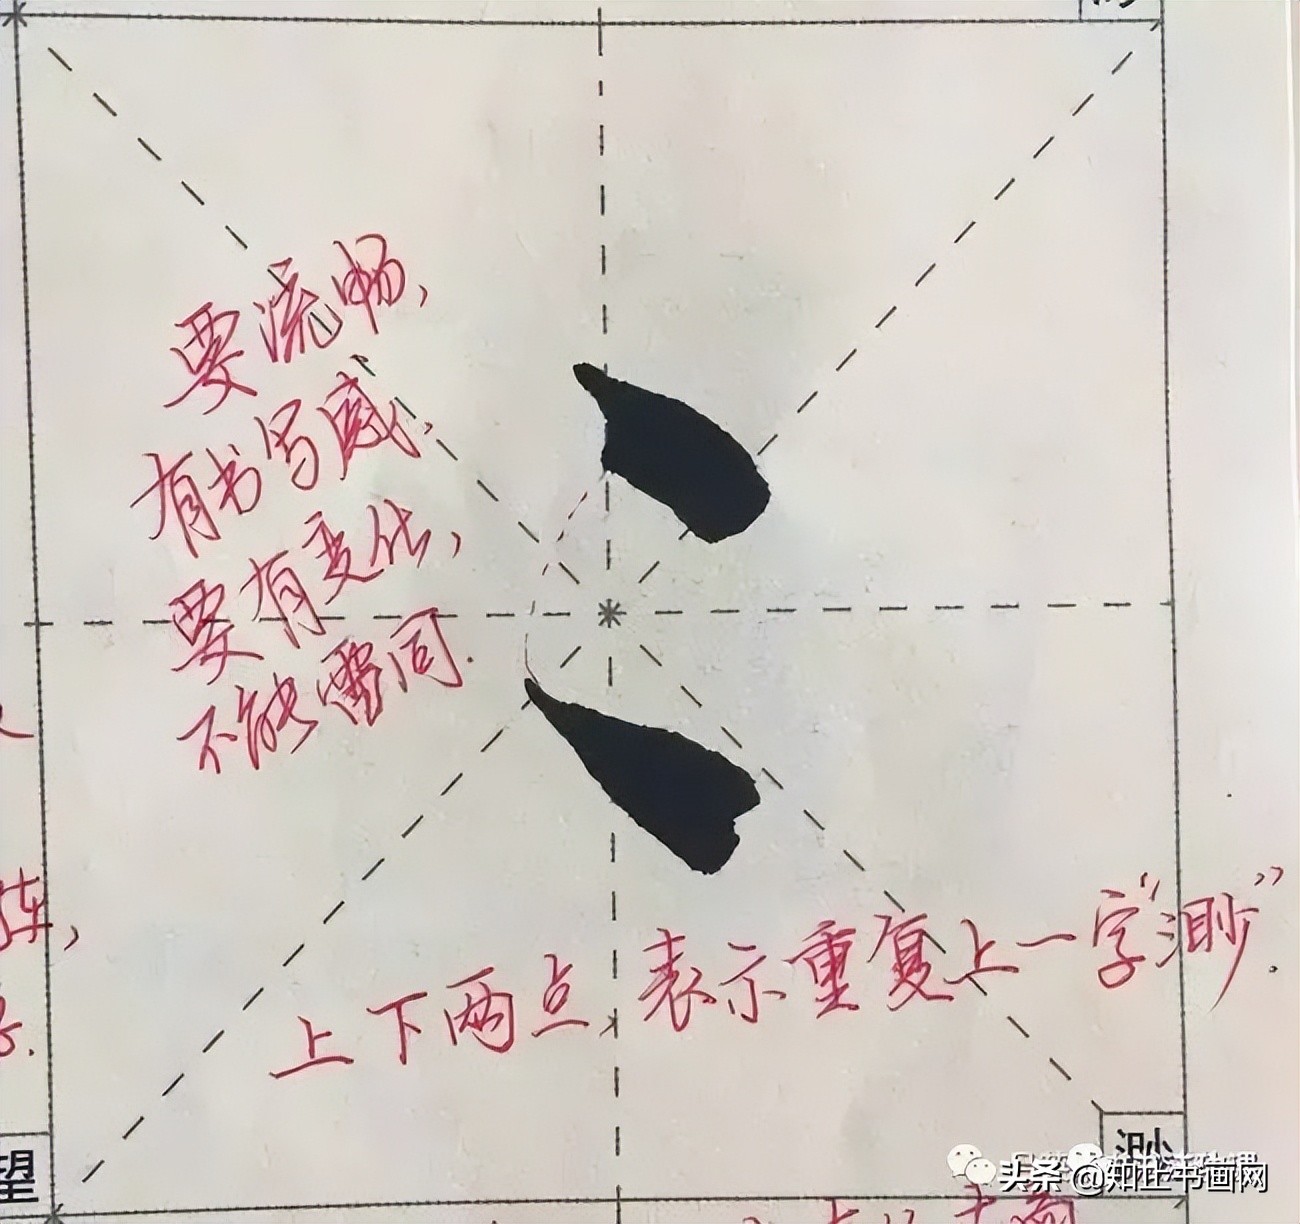 要流畅，
有书写感.
要有变化，
不能雷同.
上下两点 表示重复上一字“渺”.
望
渺
头条 @知止书画网